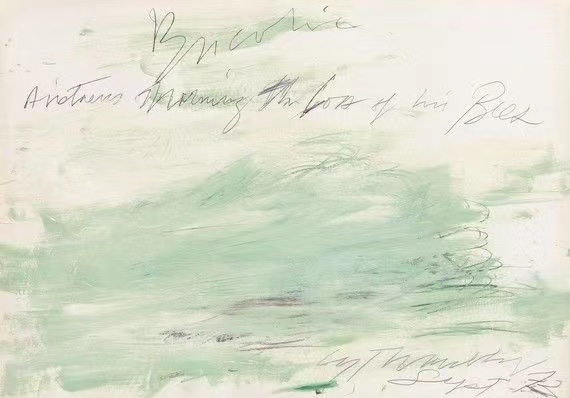 Bucolic
Aristaeus Mourning the loss of his Bees
Cy Twombly
Sept 73